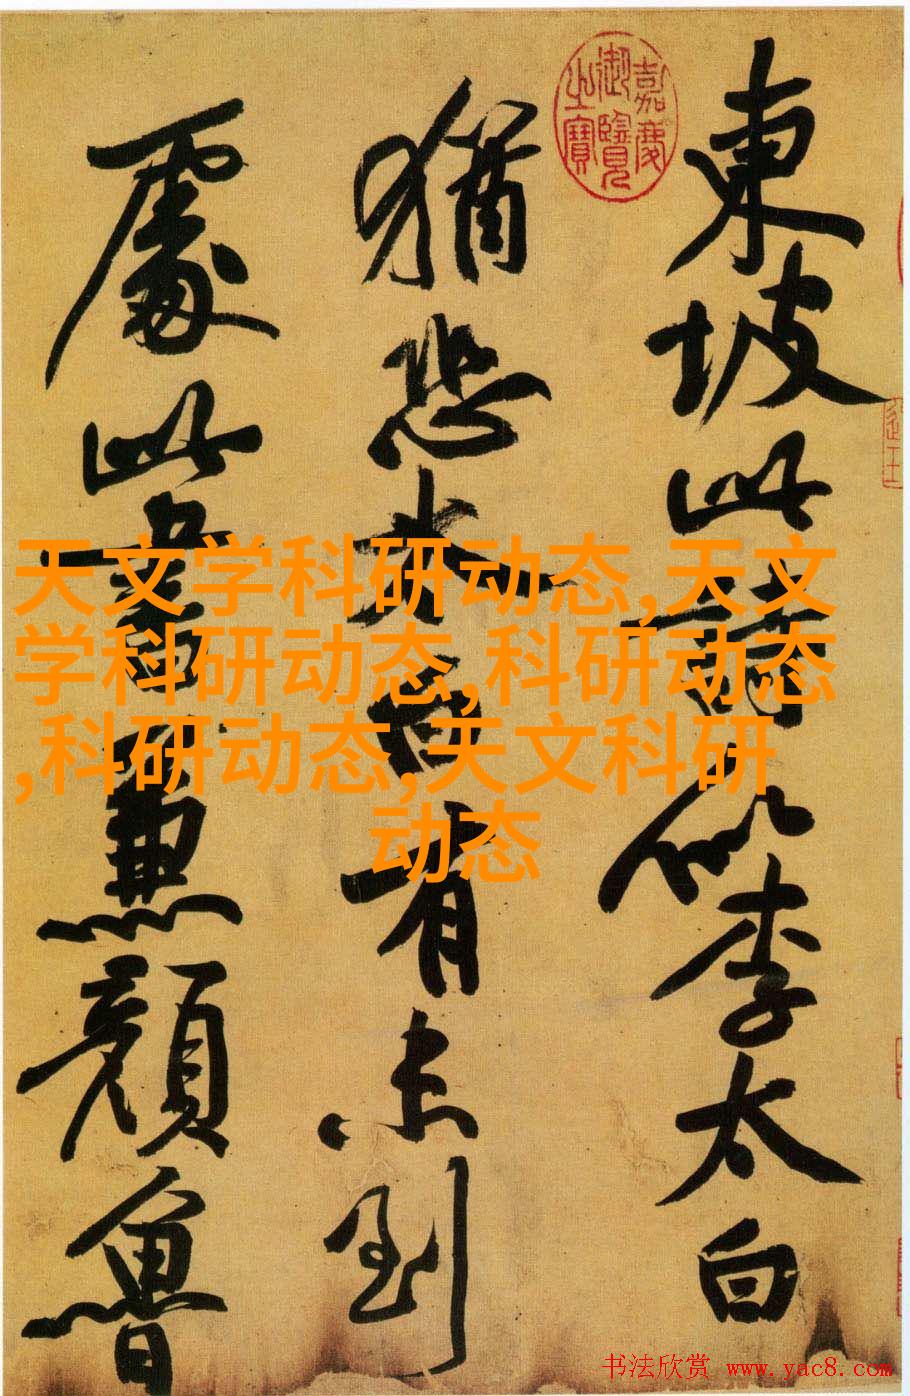 東坡此詩似李太白
猶恐太白有未到
處此書兼顏魯
嘉慶御覽之寶
天文学科研动态,天文
学科研动态,科研动态
,科研动态,天文科研
动态
书法欣赏 www.yac8.com